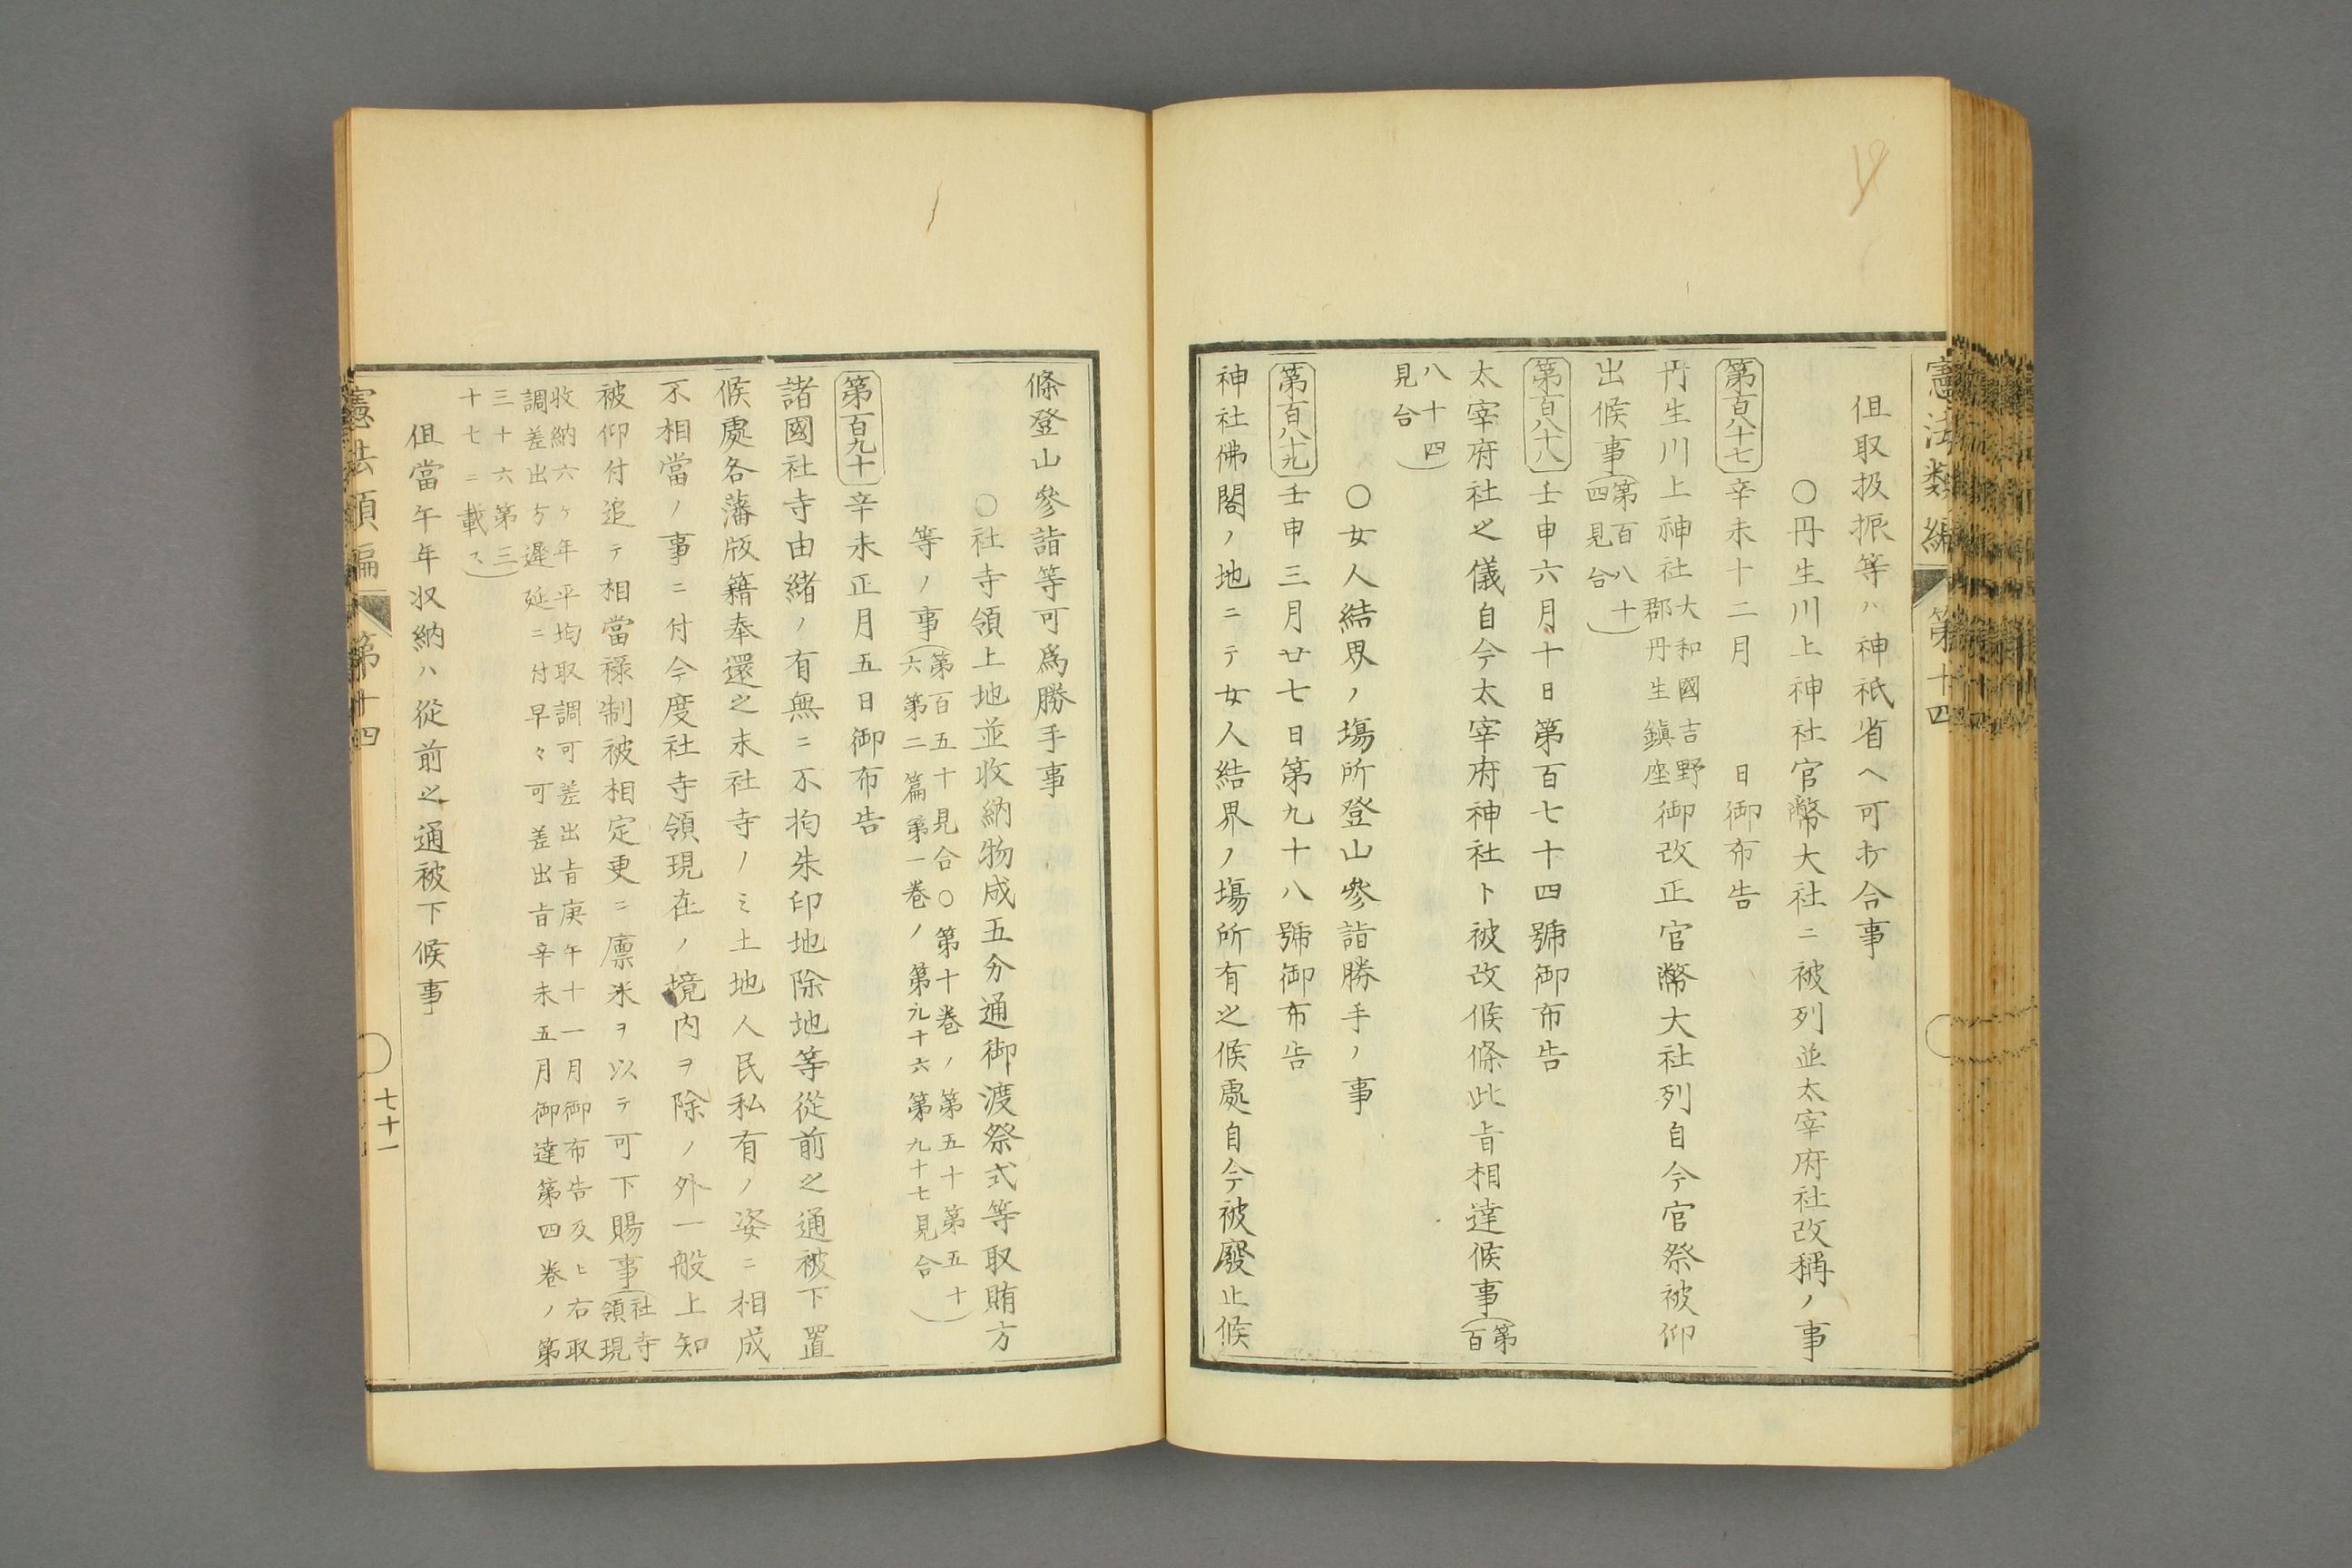 憲法類編 第十四
但取扱振等ハ神祇省ヘ可打合事
〇丹生川上神社官幣大社ニ被列並太宰府社改稱ノ事
第百八十七 辛未十二月 日御布告
丹生川上神社大和國吉野郡丹生鎭座御改正官幣大社列自今官祭被仰
出候事(第百八十四見合)
第百八十八 壬申六月十日第百七十四號御布告
太宰府社之儀自今太宰府神社ト被改候條此旨相達候事(第百
八十四見合)
〇女人結界ノ場所登山參詣勝手ノ事
第百八十九 壬申三月廿七日第九十八號御布告
神社佛閣ノ地ニテ女人結界ノ場所有之候處自今被廢止候
條登山參詣等可爲勝手事
〇社寺領上地並收納物成五分通御渡祭式等取賄方
等ノ事(第百五十見合〇第十卷ノ第五十第五十六第二篇第一卷ノ第九十六第九十七見合)
第百九十 辛未正月五日御布告
諸國社寺由緒ノ有無ニ不拘朱印地除地等從前之通被下置
候處各藩版籍奉還之末社寺ノミ土地人民私有ノ姿ニ相成
不相當ノ事ニ付今度社寺領現在ノ境内ヲ除ノ外一般上知
被仰付追テ相當祿制被相定更ニ廩米ヲ以テ可下賜事(社寺領現
收納六ヶ年平均取調可差出旨庚午十一月御布告及ヒ右取
調差出方遲延ニ付早々可差出旨辛未五月御達第四卷ノ第
三十六第三十七ニ載ス)
但當午年收納ハ從前之通被下候事
憲法類編 第十四 七十一